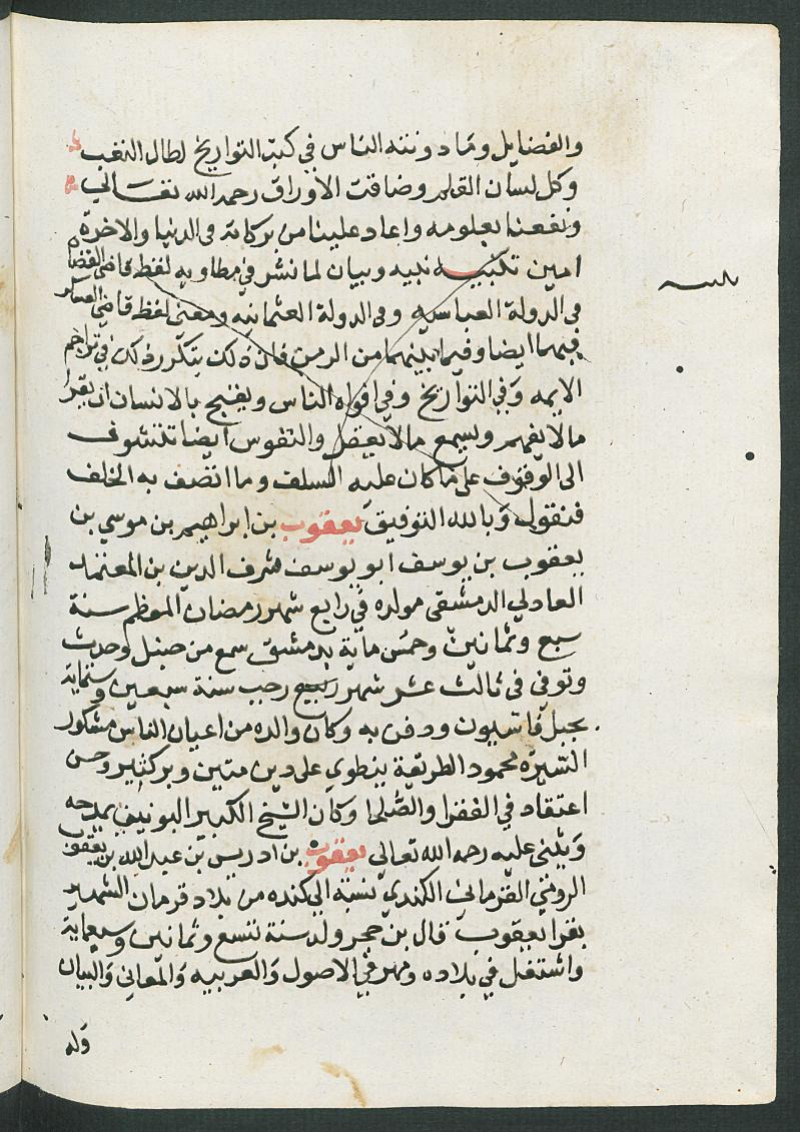 والفضايل وما دونته الناس في كتب التواريخ لطال التعب
وكل لسان القلم وضاقت الاوراق رحمه الله تعالي
ونفعنا بعلومه واعاد علينا من بركاته في الدنيا والاخرة
امين تنبيه نبيه وبيان لما نشر في مطاويه لفظ قاضي القضاه
في الدولة العباسيه وفي الدولة العثمانيه ومعني لفظ قاضي العساكر
فيهما ايضا وفيما بينهما من الزمن فان ذلك يتكرر ذكره في تراجم
الايمه وفي التواريخ وفي افواه الناس ويقبح بالانسان ان يقرا
مالا يفهم ويسمع مالا يعقل والنفوس ايضا تتشوف
الي الوقوف علي ما كان عليه السلف وما اتصف به الخلف
فنقول وبالله التوفيق يعقوب بن ابراهيم بن موسي بن
يعقوب بن يوسف ابو يوسف شرف الدين بن المعتمد
العادلي الدمشقي مولده في رابع شهر رمضان المعظم سنة
سبع وثمانين وخمس ماية بدمشق سمع من حنبل وحدث
وتوفي في ثالث عشر شهر ربيع رجب سنة سبعين وستماية
بجبل قاسيون ودفن به وكان والده من اعيان الناس مشكور
السيرة محمود الطريقة ينطوي علي دين متين وبر كثير وحسن
اعتقاد في الفقرا والصلحا وكان الشيخ الكبير اليونيني يمدحه
ويثني عليه رحمه الله تعالي يعقوب بن ادريس بن عبد الله بن يعقوب
الرومي القرماني الكندي نسبة الي كنده من بلاد قرمان الشهير
بقرا يعقوب قال بن حجر ولد سنة تسع وثمانين وسبعماية
واشتغل في بلاده ومهر في الاصول والعربيه والمعاني والبيان
وله